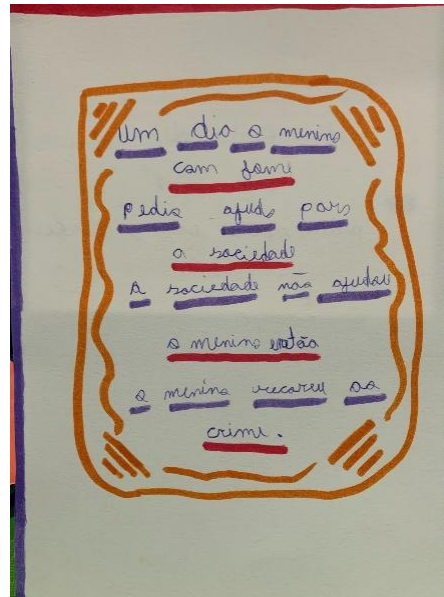 Um dia o menino
com fome
pedio ajuda para
a sociedade
A sociedade não ajudou
o menino então
o menino recoreu ao
crime.